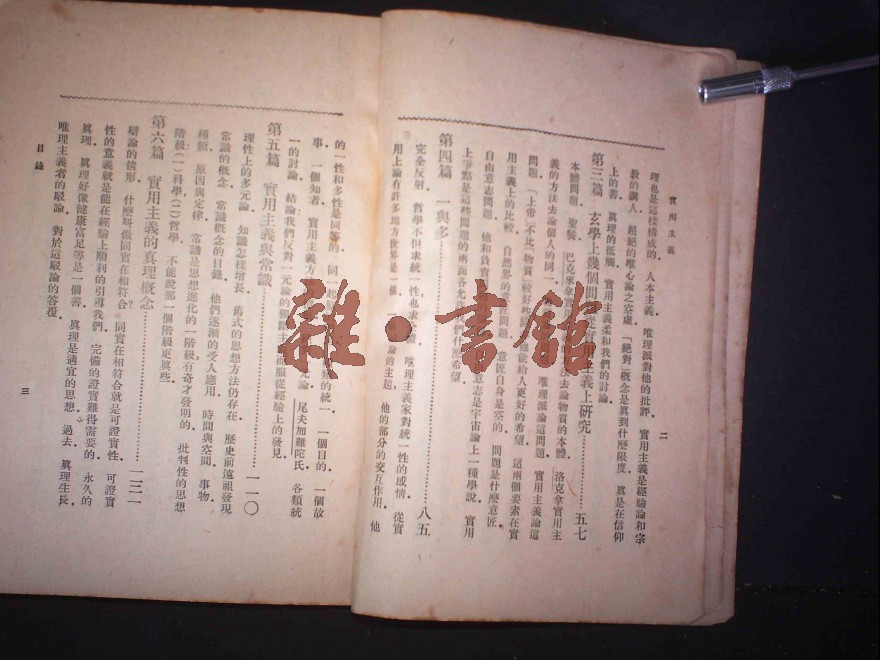 實用主義
二
理也是這樣構成的．人本主義．唯理派對他的批評．實用主義是經驗論和宗
教的調人．超絕的唯心論之空虛．「絕對」概念是真到什麼限度．真是在信仰
上的善．真理的抵觸．實用主義柔和我們的討論．
第三篇　玄學上幾個問題從實用主義上研究…………五七
本體問題．聖餐．巴克來拿實用主義的方法去論物質的本體．洛克拿實用主
義的方法去論個人的同一．唯理派論這問題．實用主義論這
問題．「上帝」不比「物質」較好些能給人更好的希望．這兩個要素在實
用主義上的比較．自然界的意匠問題．意匠自身是空的．問題是什麼意匠．
自由意志問題．他和負責意志是宇宙論上一種學說．實用
上爭點是這些問題的兩面各允許我們什麼希望．
第四篇　一與多…………八五
完全反射．哲學不但求統一性也求．唯理主義家對統一性的感情．從實
用上論有許多地方世界是一個．一種論的主題．他的部分的交互作用．他
的一性和多性是同等的．同一起原的統一．一個目的．一個故
事．一個知者．實用主義方論．尼夫加難陀氏．各類統
一的討論．結論我們反對一元論的獨斷主義而服從經驗上的發見．
第五篇　實用主義與常識…………一一〇
理性上的多元論．知識怎樣增長．舊式的思想方法仍存在．歷史前遠祖發現
常識的概念．常識概念的目錄．他們逐漸的受人應用．時間與空間．事物．
種類．原因與定律．常識是思想進化的一階級有奇才發明的．批判性的思想
階級（一）科學（二）哲學．不能說那一個階級更真些．
第六篇　實用主義的真理概念…………一三一
辯論的情形．什麼叫做同實在相符合？同實在相符合就是可證實性．可證實
性的意義就是能在經驗上順利的引導我們．完備的證實難得需要的．永久的
真理．真理好像健康富足等是一個善．真理是適宜的思想．過去．真理生長．
唯理主義者的駁論．對於這駁論的答覆．
目錄
三
雜·書館